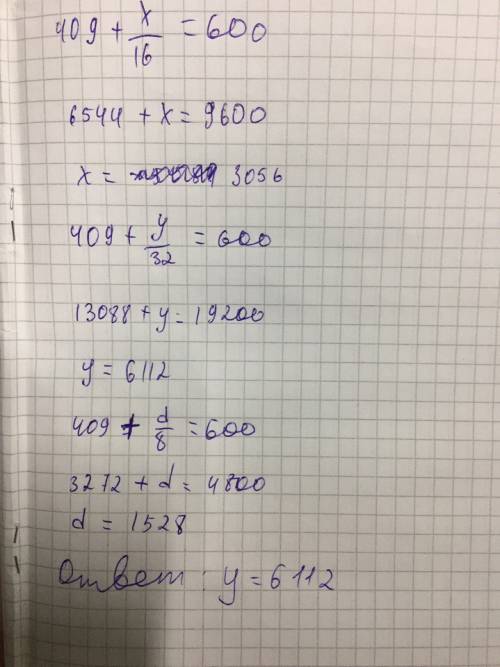 409 + x/16 = 600
6544 + x = 9600
x = 3056
409 + y/32 = 600
13088 + y = 19200
y = 6112
409 + d/8 = 600
3272 + d = 4800
d = 1528
Ответ: y = 6112